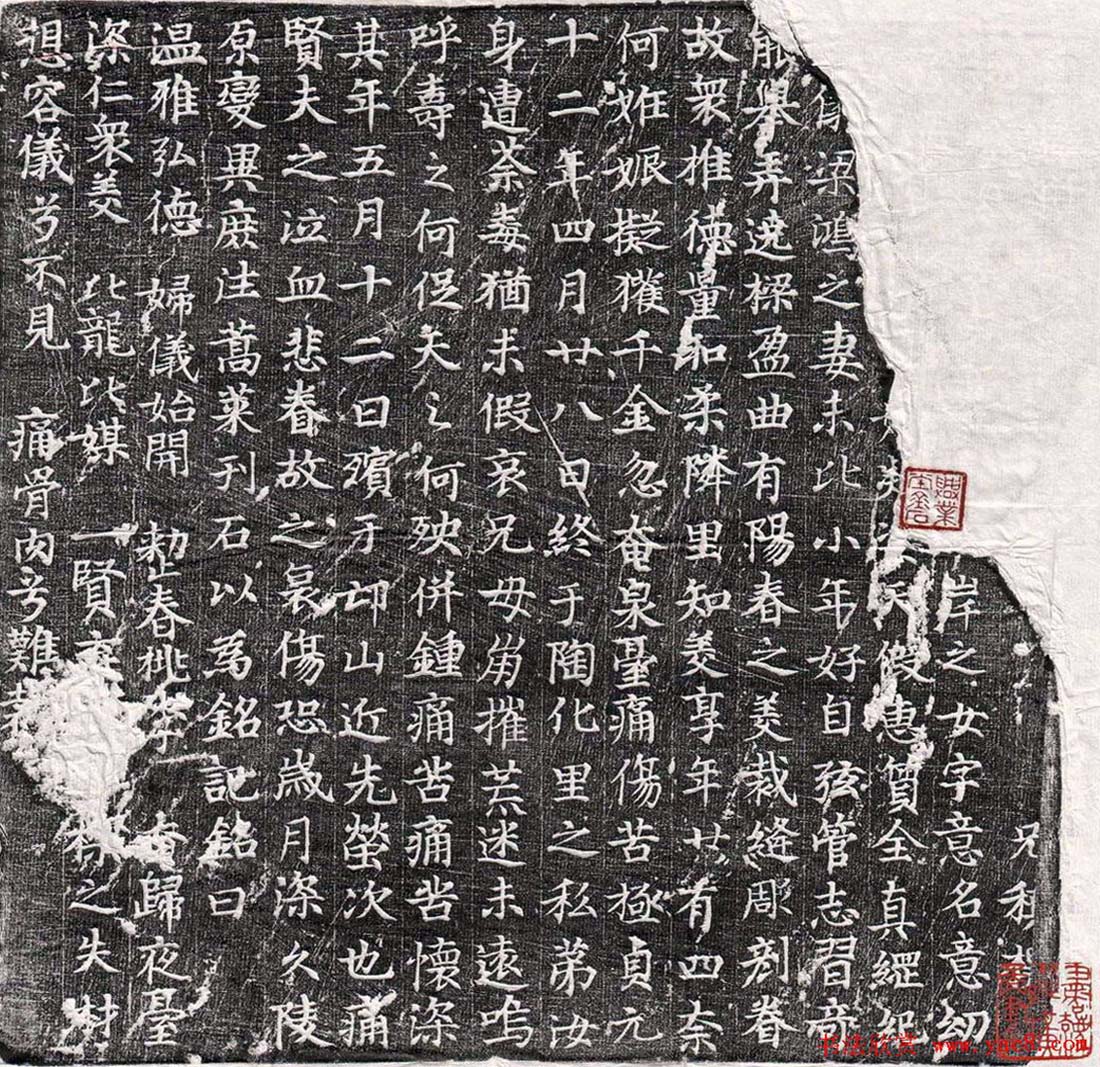 兄利
岸之女字意名意紉
天假惠質全真
梁鴻之妻未比小年好自弦管志習音
能舉弄遶樑盈曲有陽春之美裁縫彫剋眷
故衆推德量和柔隣里知美享年廿有四柰
何姙娠擬獲千金忽奄泉臺痛傷苦極貞元
十二年四月廿八日終于陶化里之私第汝
身遭荼毒猶未假哀兄毋崩摧荒迷未遠嗚
呼壽之何促夭之何殃併鍾痛苦痛苦懷深
其年五月十二日殯于邙山近先塋次也痛
賢夫之泣血悲眷故之哀傷恐歲月深久陵
原變異庶注蒿萊刊石以為銘記銘曰
温雅弘德 婦儀始開 勑春桃李 杳歸夜臺
深仁衆美 比龍比媒 一賢 之失
想容儀兮不見 痛骨肉兮難
书法欣赏 www.yac8.com